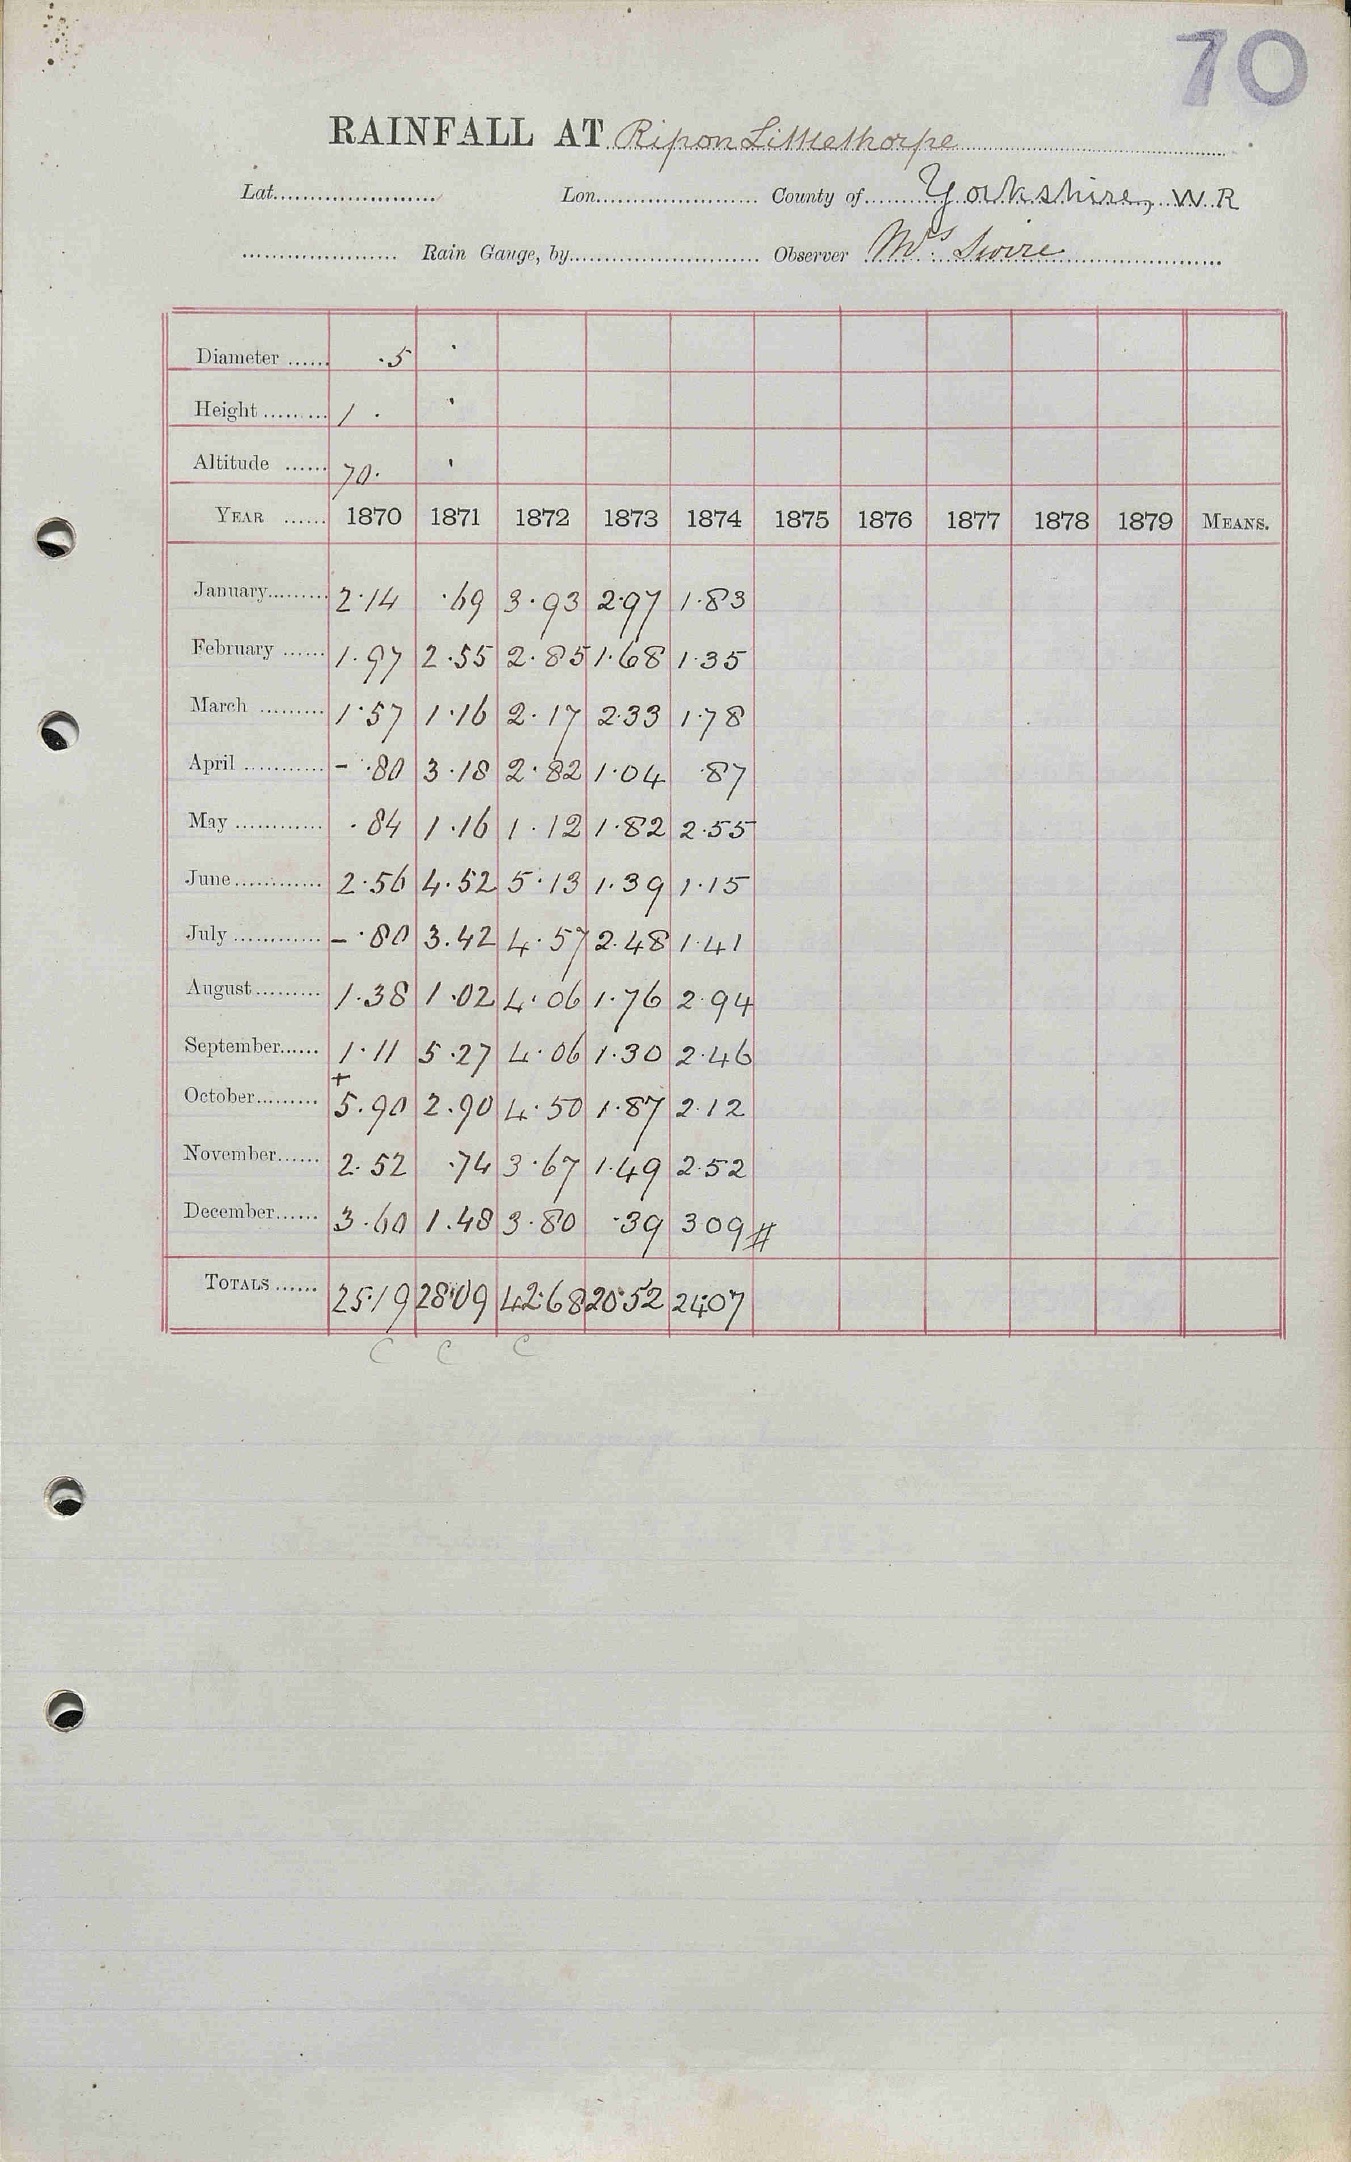 70
RAINFALL AT Ripon Littlethorpe
Lat. Lon. County of Yorkshire, W R
Rain Gauge, by Observer Mrs Swire
Diameter .5
Height 1 .
Altitude 70.
YEAR 1870 1871 1872 1873 1874 1875 1876 1877 1878 1879 MEANS.
January 2.14 .69 3.93 2.97 1.83
February 1.97 2.55 2.85 1.68 1.35
March 1.57 1.16 2.17 2.33 1.78
April - .80 3.18 2.82 1.04 .87
May .84 1.16 1.12 1.82 2.55
June 2.56 4.52 5.13 1.39 1.15
July - .80 3.42 4.57 2.48 1.41
August 1.38 1.02 4.06 1.76 2.94
September 1.11 5.27 4.06 1.30 2.46
+
October 5.90 2.90 4.50 1.87 2.12
November 2.52 .74 3.67 1.49 2.52
December 3.60 1.48 3.80 .39 3 09 #
TOTALS 25.19 28.09 42.68 20.52 24.07
C C C